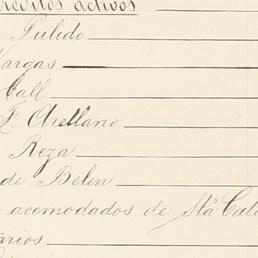 Creditos activos
Pulido
Vargas
Call
F. Arellano
Reza
de Belen
acomodados de Sta Cata
arios